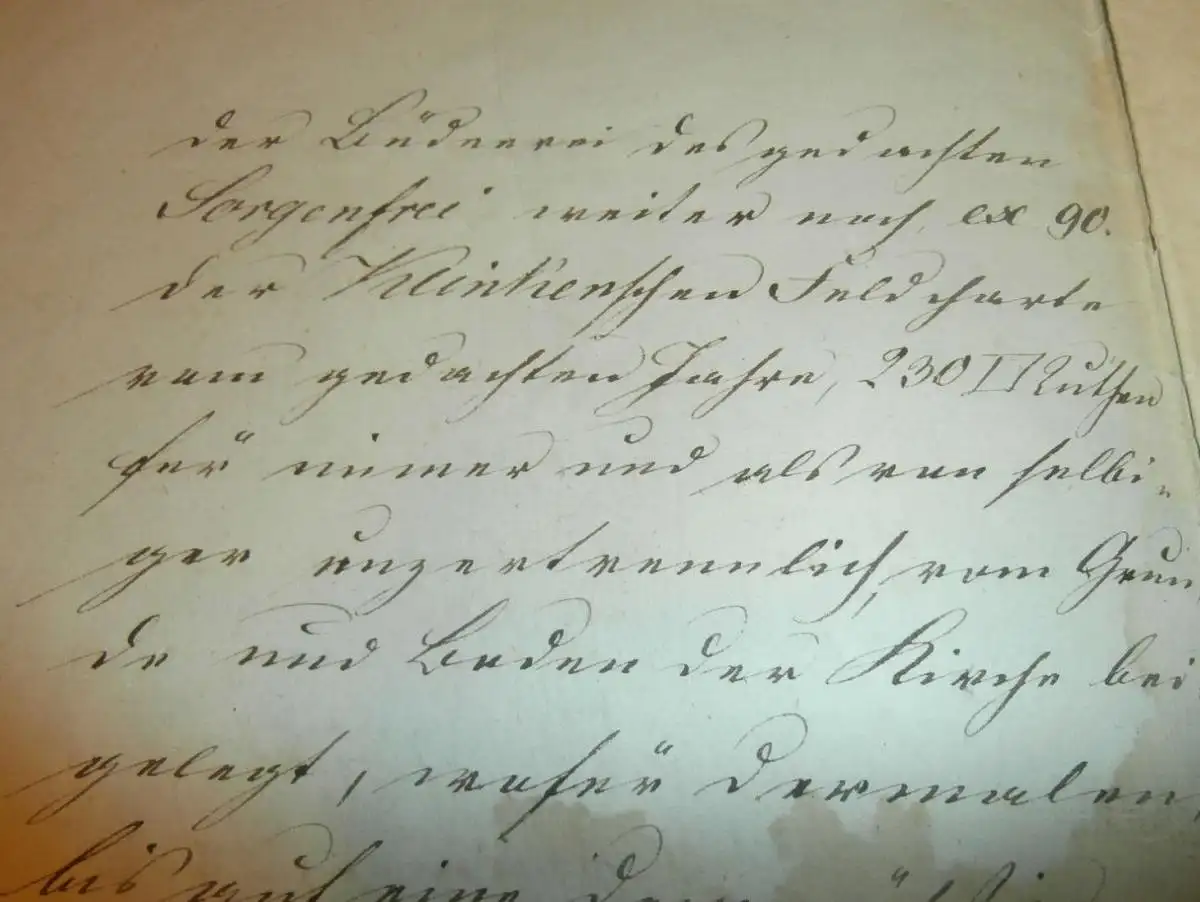 der Büdnerei des gedachten
Sorgenfrei weiter noch, ex 90.
der Klinkenschen Feldcharte
vom gedachten Jahre, 230 □Ruthen
für immer und als von selbi-
ger unzertrennlich, vom Grun
de und Boden der Kirche bei
gelegt, wofür dermalen,
bis auf eine